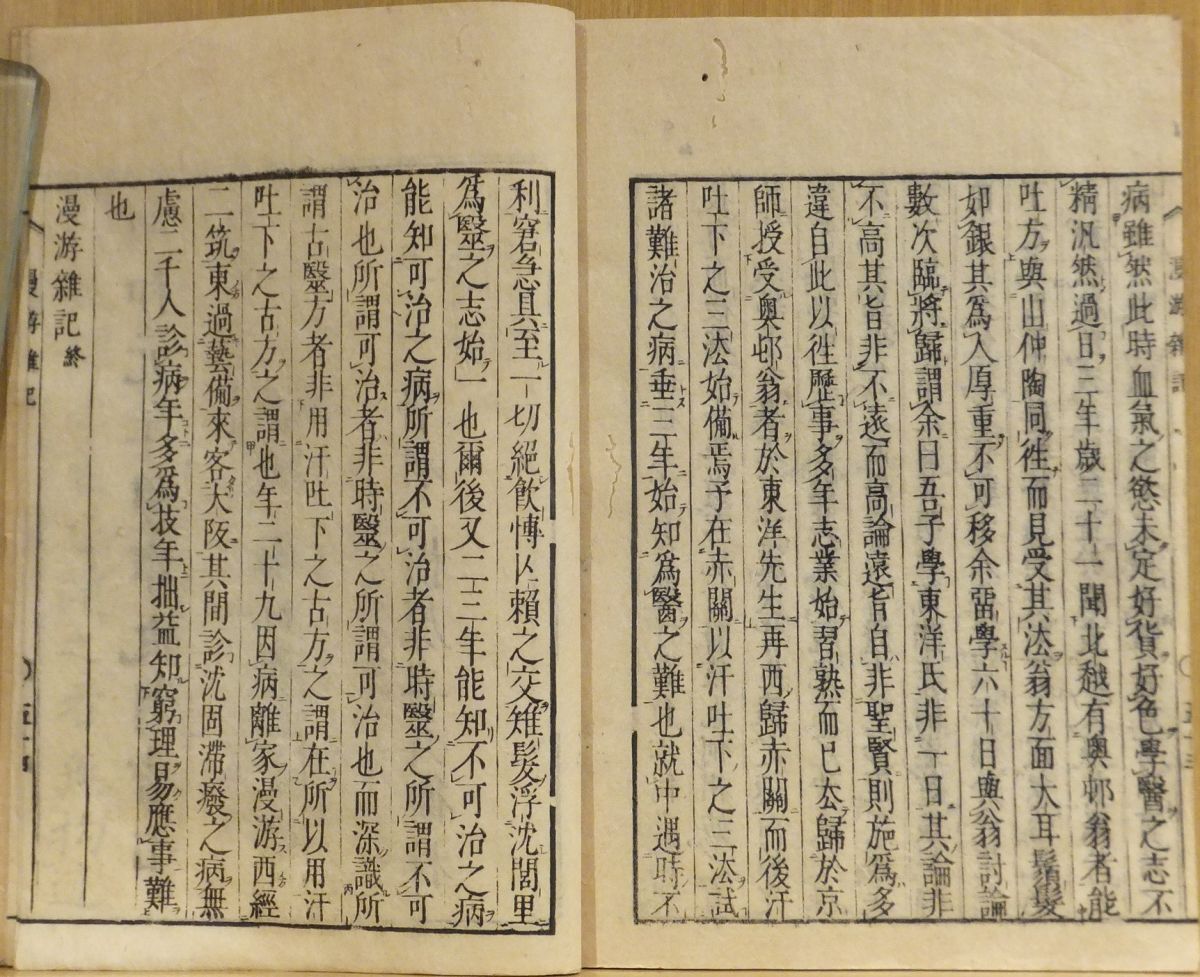 病雖然此時血氣之慾未定好貨好色學醫之志不
精汎然過日三年歲二十一聞北越有奧邨翁者能
吐方與山仲陶同徃而見受其法翁方面大耳鬚髮
如銀其為人厚重不可移余畱學六十日與翁討論
數次臨將歸謂余曰吾子學東洋氏非一日其論非
不高其旨非不遠而高論遠旨自非聖賢則施為多
違自此以徃歷事多年志業始習熟而已厺歸於京
師授受奧邨翁者於東洋先生再西歸赤關而後汗
吐下之三法始備焉予在赤關以汗吐下之三法試
諸難治之病垂三年始知為醫之難也就中遇時不
利窘急具至一切絕飲慱亾賴之交雉髮浮沈閭里
為醫之志始一也爾後又二三年能知不可治之病
能知可治之病所謂不可治者非時醫之所謂不可
治也所謂可治者非時醫之所謂可治也而深識所
謂古醫方者非用汗吐下之古方之謂在所以用汗
吐下之古方之謂也年二十九因病離家漫游西經
二筑東過藝備來客大阪其間診沈固滯癈之病無
慮二千人診病年多為技年拙益知窮理易應事難
也
漫游雜記終
漫游雜記